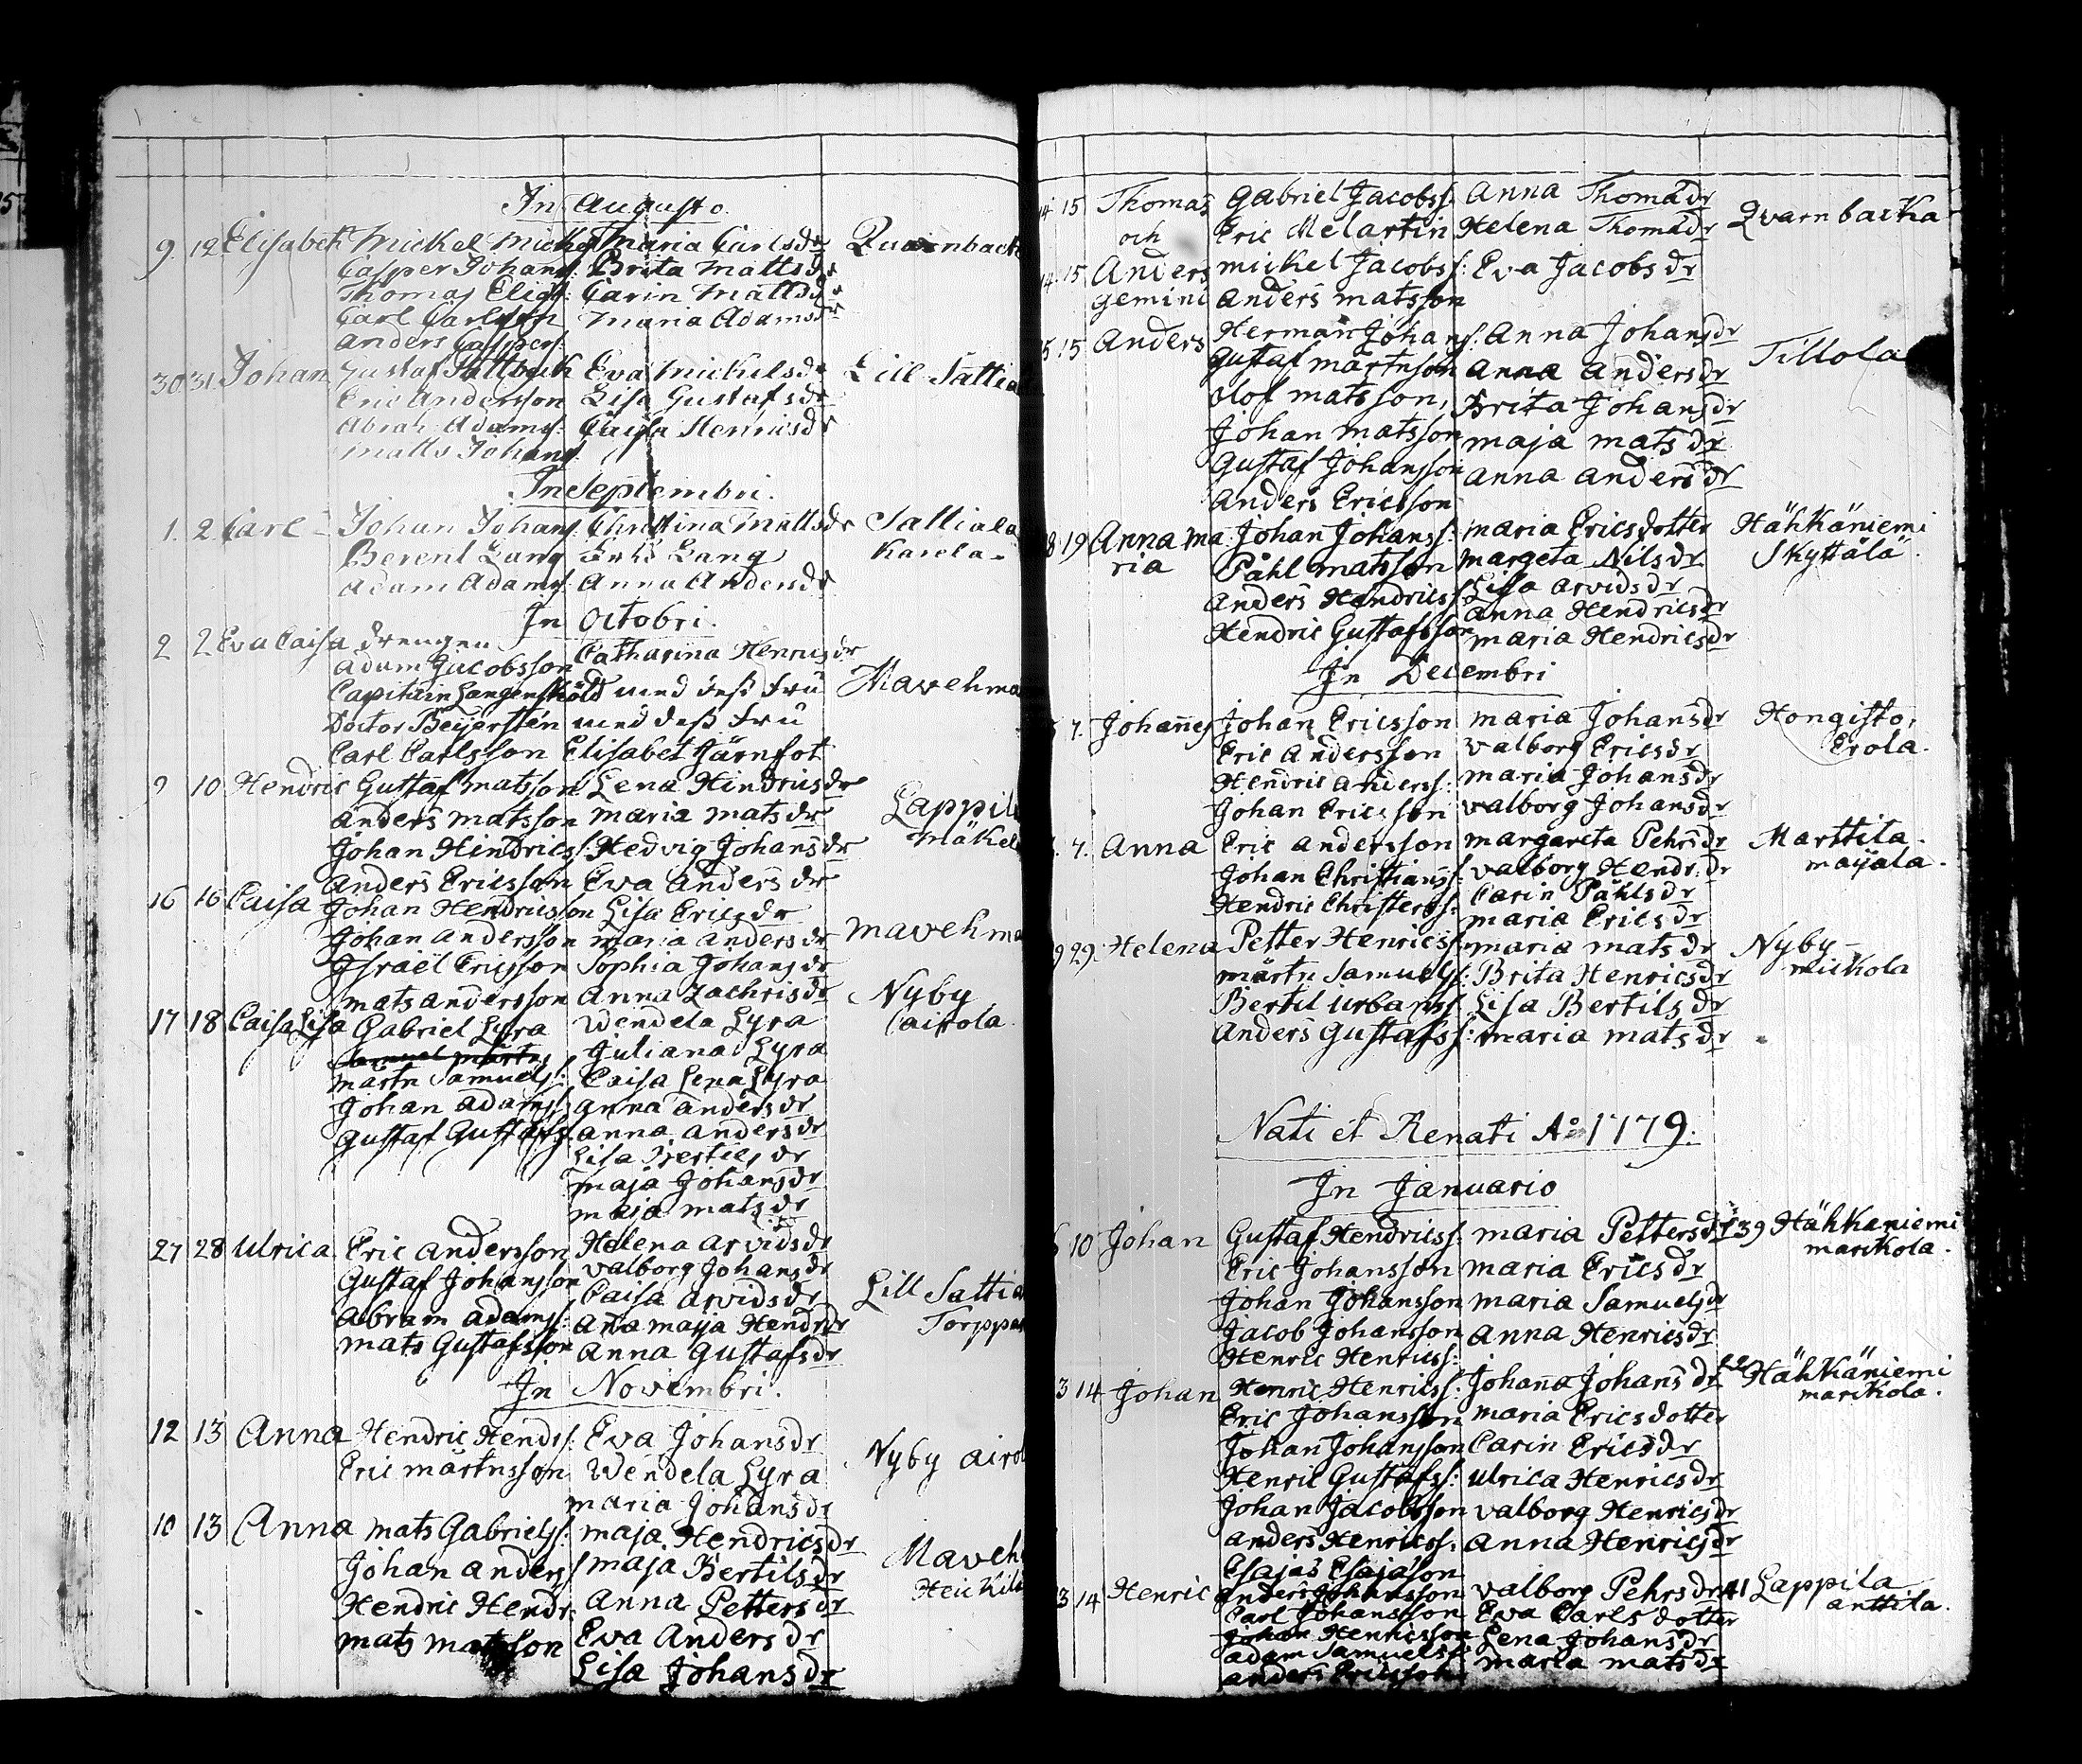 In Augusto.
9. 12 Elisabeth Mickel Mickelss: Maria Carlsdr Quarnback
Casper Johans: Brita Mattsdr
Thomas Elias: Carin Mattsdr
Carl Carlsson Maria Adamsdr
Anders Caspers:
30 31 Johan Gustaf Sattbeck Eva Mickelsdr Lill Sattia
Eric Andersson Lisa Gustafsdr
Abrah. Adams: Caisa Henricsdr
Matts Johans:
In Septembri.
1. 2. Carl Johan Johans: Christina Mattsdr Sattiala
Berent Lang Lang Karela
Adam Adams: Anna Andersdr
In Octobri.
2 2 Eva Caisa drengen
Adam Jacobsson Catharina Henricsdr
Capitain Langenskiöld med dess fru Mavehma
Doctor Beijerstén med dess fru
Carl Carlsson Elisabet Järnfot
9 10 Hendric Gustaf Matsson Lena Hindricsdr Lappil
Anders Matsson Maria Matsdr Mäkel
Johan Hindricss: Hedvig Johansdr
Anders Ericsson Eva Andersdr
16 16 Caisa Johan Hendricsson Lisa Ericsdr Mavehma
Johan Andersson Maria Andersdr
Israel Ericsson Sophia Johansdr
Mats Andersson Anna Zachrisdr
17 18 Caisa Lisa Gabriel Lyra Wendela Lyra Nyby
Samuel Mårtns Juliana Lyra Caittola
Mårtn Samuels: Caisa Lena Lyra
Johan Adamss: Anna Andersdr
Gustaf Gustafss: Anna Andersdr
Lisa Bertilsdr
Maja Johansdr
Maja Matsdr
27 28 Ulrica Eric Andersson Helena Arvidsdr Lill Sattia
Gustaf Johansson Valborg Johansdr Torppa
Abram Adamss: Caisa Arvidsdr
Mats Gustafsson Aña Maija Hendrdr
Anna Gustafsdr
In Novembri.
12 13 Anna Hendric Hendrs: Eva Johansdr Nyby Airo
Eric Mårtnsson Wendela Lyra
Maria Johansdr
10 13 Anna Mats Gabrielss: Maja Hendricsdr Maveh
Johan Anderss Maja Bertilsdr Heickil
Hendric Hendr: Anna Pettersdr
Mats Matsson Eva Andersdr
Lisa Johansdr
14 15 Thomas Gabriel Jacobss: Anna Thomædr Qvarnbacka
och Eric Melartin Helena Thomædr
14. 15 Anders Mickel Jacobss: Eva Jacobsdr
gemini Anders Matsson
15 15 Anders Herman Johans: Anna Johansdr Tillola
Gustaf Mårtnson Anna Andersdr
Olof Matsson, Brita Johansdr
Johan Matsson Maja Matsdr
Gustaf Johansson Anna Andersdr
Anders Ericsson
18 19 Anna Ma Johan Johanss: Maria Ericsdotter Hähkäniemi
ria Påhl Matsson Margeta Nilsdr Skyttälä.
Anders Hendricss Lisa Arvidsdr
Hendric Gustafsson Anna Hendricsdr
Maria Hendricsdr
In Decembri
7. Johañes Johan Ericsson Maria Johansdr Hongisto,
Eric Andersson Valborg Ericsdr Erola.
Hendric Anderss: Maria Johansdr
Johan Ericsson Valborg Johansdr
7. Anna Eric Andersson Margareta Pehrsdr Marttila
Johan Christianss: Valborg Hendr:dr Maijala.
Hendric Christerss: Carin Påhlsdr
Maria Ericsdr
29. Helena Petter Henricss: Maria Matsdr Nyby
Mårtn Samuelss: Brita Henricsdr Mickola
Bertil Urbanss: Lisa Bertilsdr
Anders Gustafss: Maria Matsdr
Nati et Renati A:o 1779.
In Januario
10 Johan Gustaf Hendricss: Maria Pettersdr 39 Hähkaniemi
Eric Johansson Maria Ericsdr Marikola.
Johan Johansson Maria Samuelsdr
Jacob Johansson Anna Henricsdr
Henric Henricss:
3 14 Johan Henric Henricss: Johaña Johansdr Hähkäniemi
Eric Johansson Maria Ericsdotter Marikola.
Johan Johansson Carin Ericsdr
Henric Gustafss: Ulrica Henricsdr
Johan Jacobsson Valborg Henricsdr
Anders Henricss: Anna Henricsdr
Esajas Esajæson
3 14 Henric Anders Johansson Valborg Pehrsdr 41 Lappila
Carl Johansson Eva Carlsdotter Anttila.
Johan Henricsson Lena Johansdr
Adam Samuelss: Maria Matsdr
Anders Ericsson